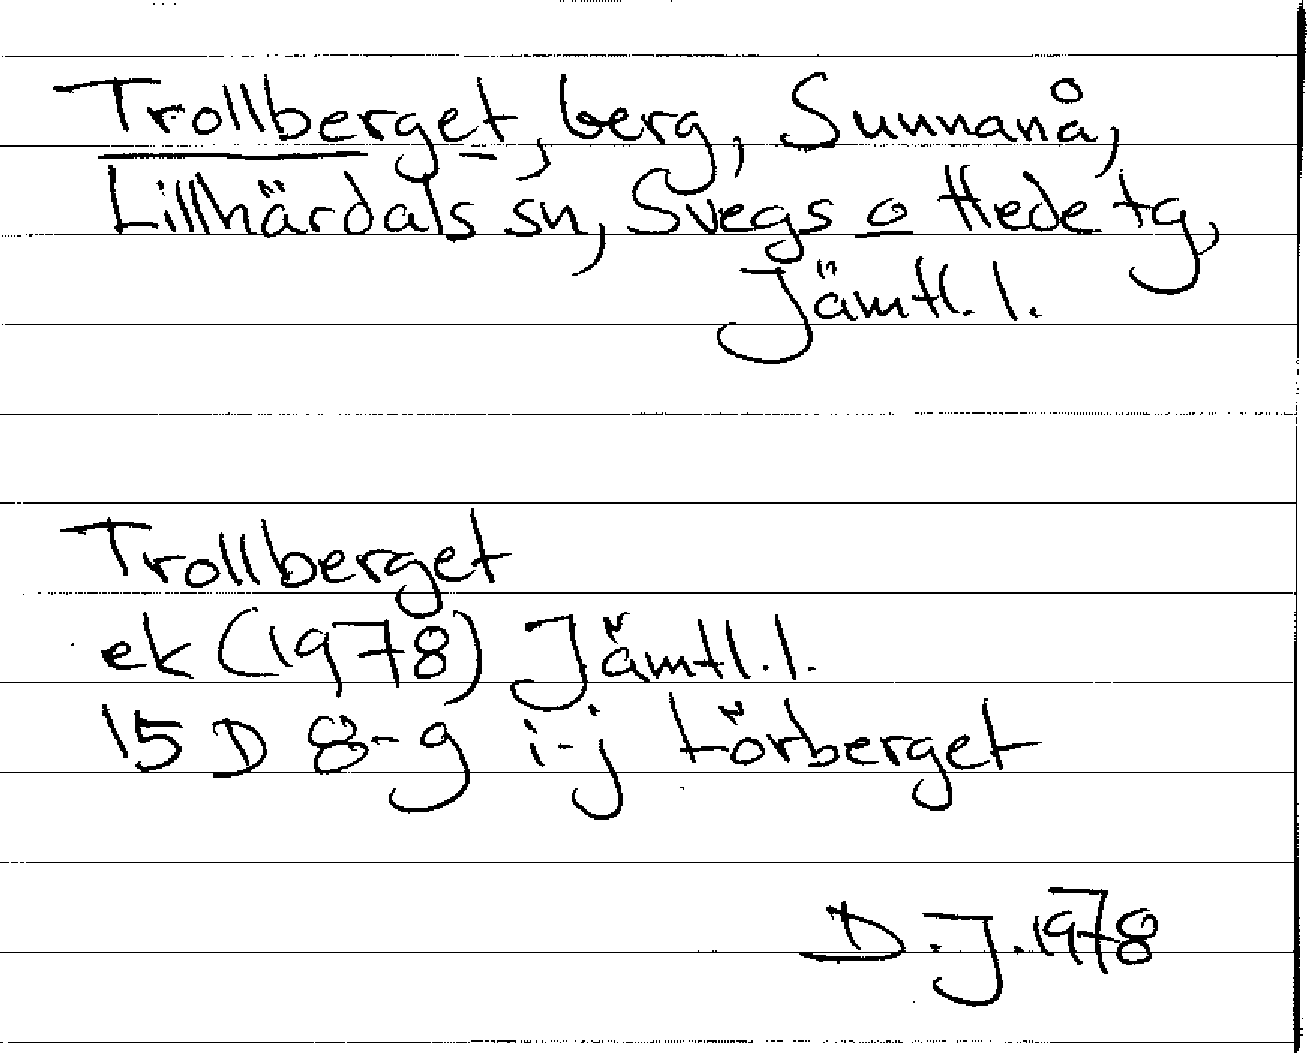 Trollberget, berg, Sunnanå,
Lillhärdals sn, Svegs o Hede tg,
Jämtl. l.
Trollberget
ek (1978) Jämtl. l.
15 D 8-g i-j Lörberget
D.J. 1978